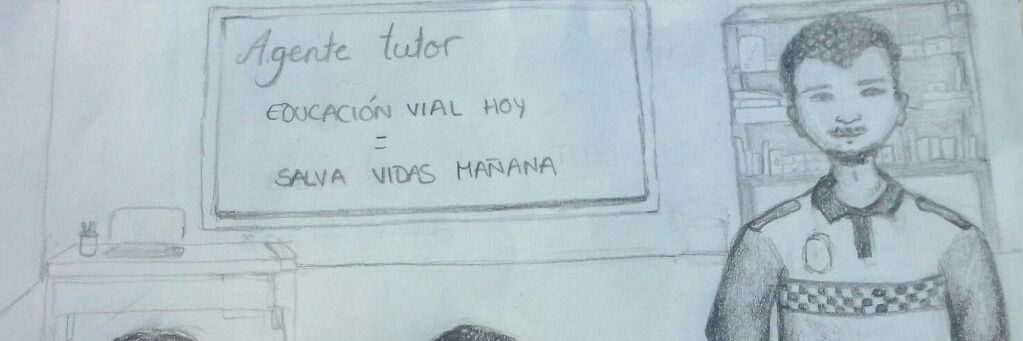 Agente tutor
EDUCACIÓN VIAL HOY
=
SALVA VIDAS MAÑANA